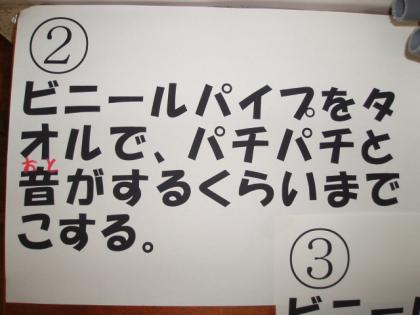 ②
ビニールパイプをタ
オルで、パチパチと
おと
音がするくらいまで
こする。
③
ビニー